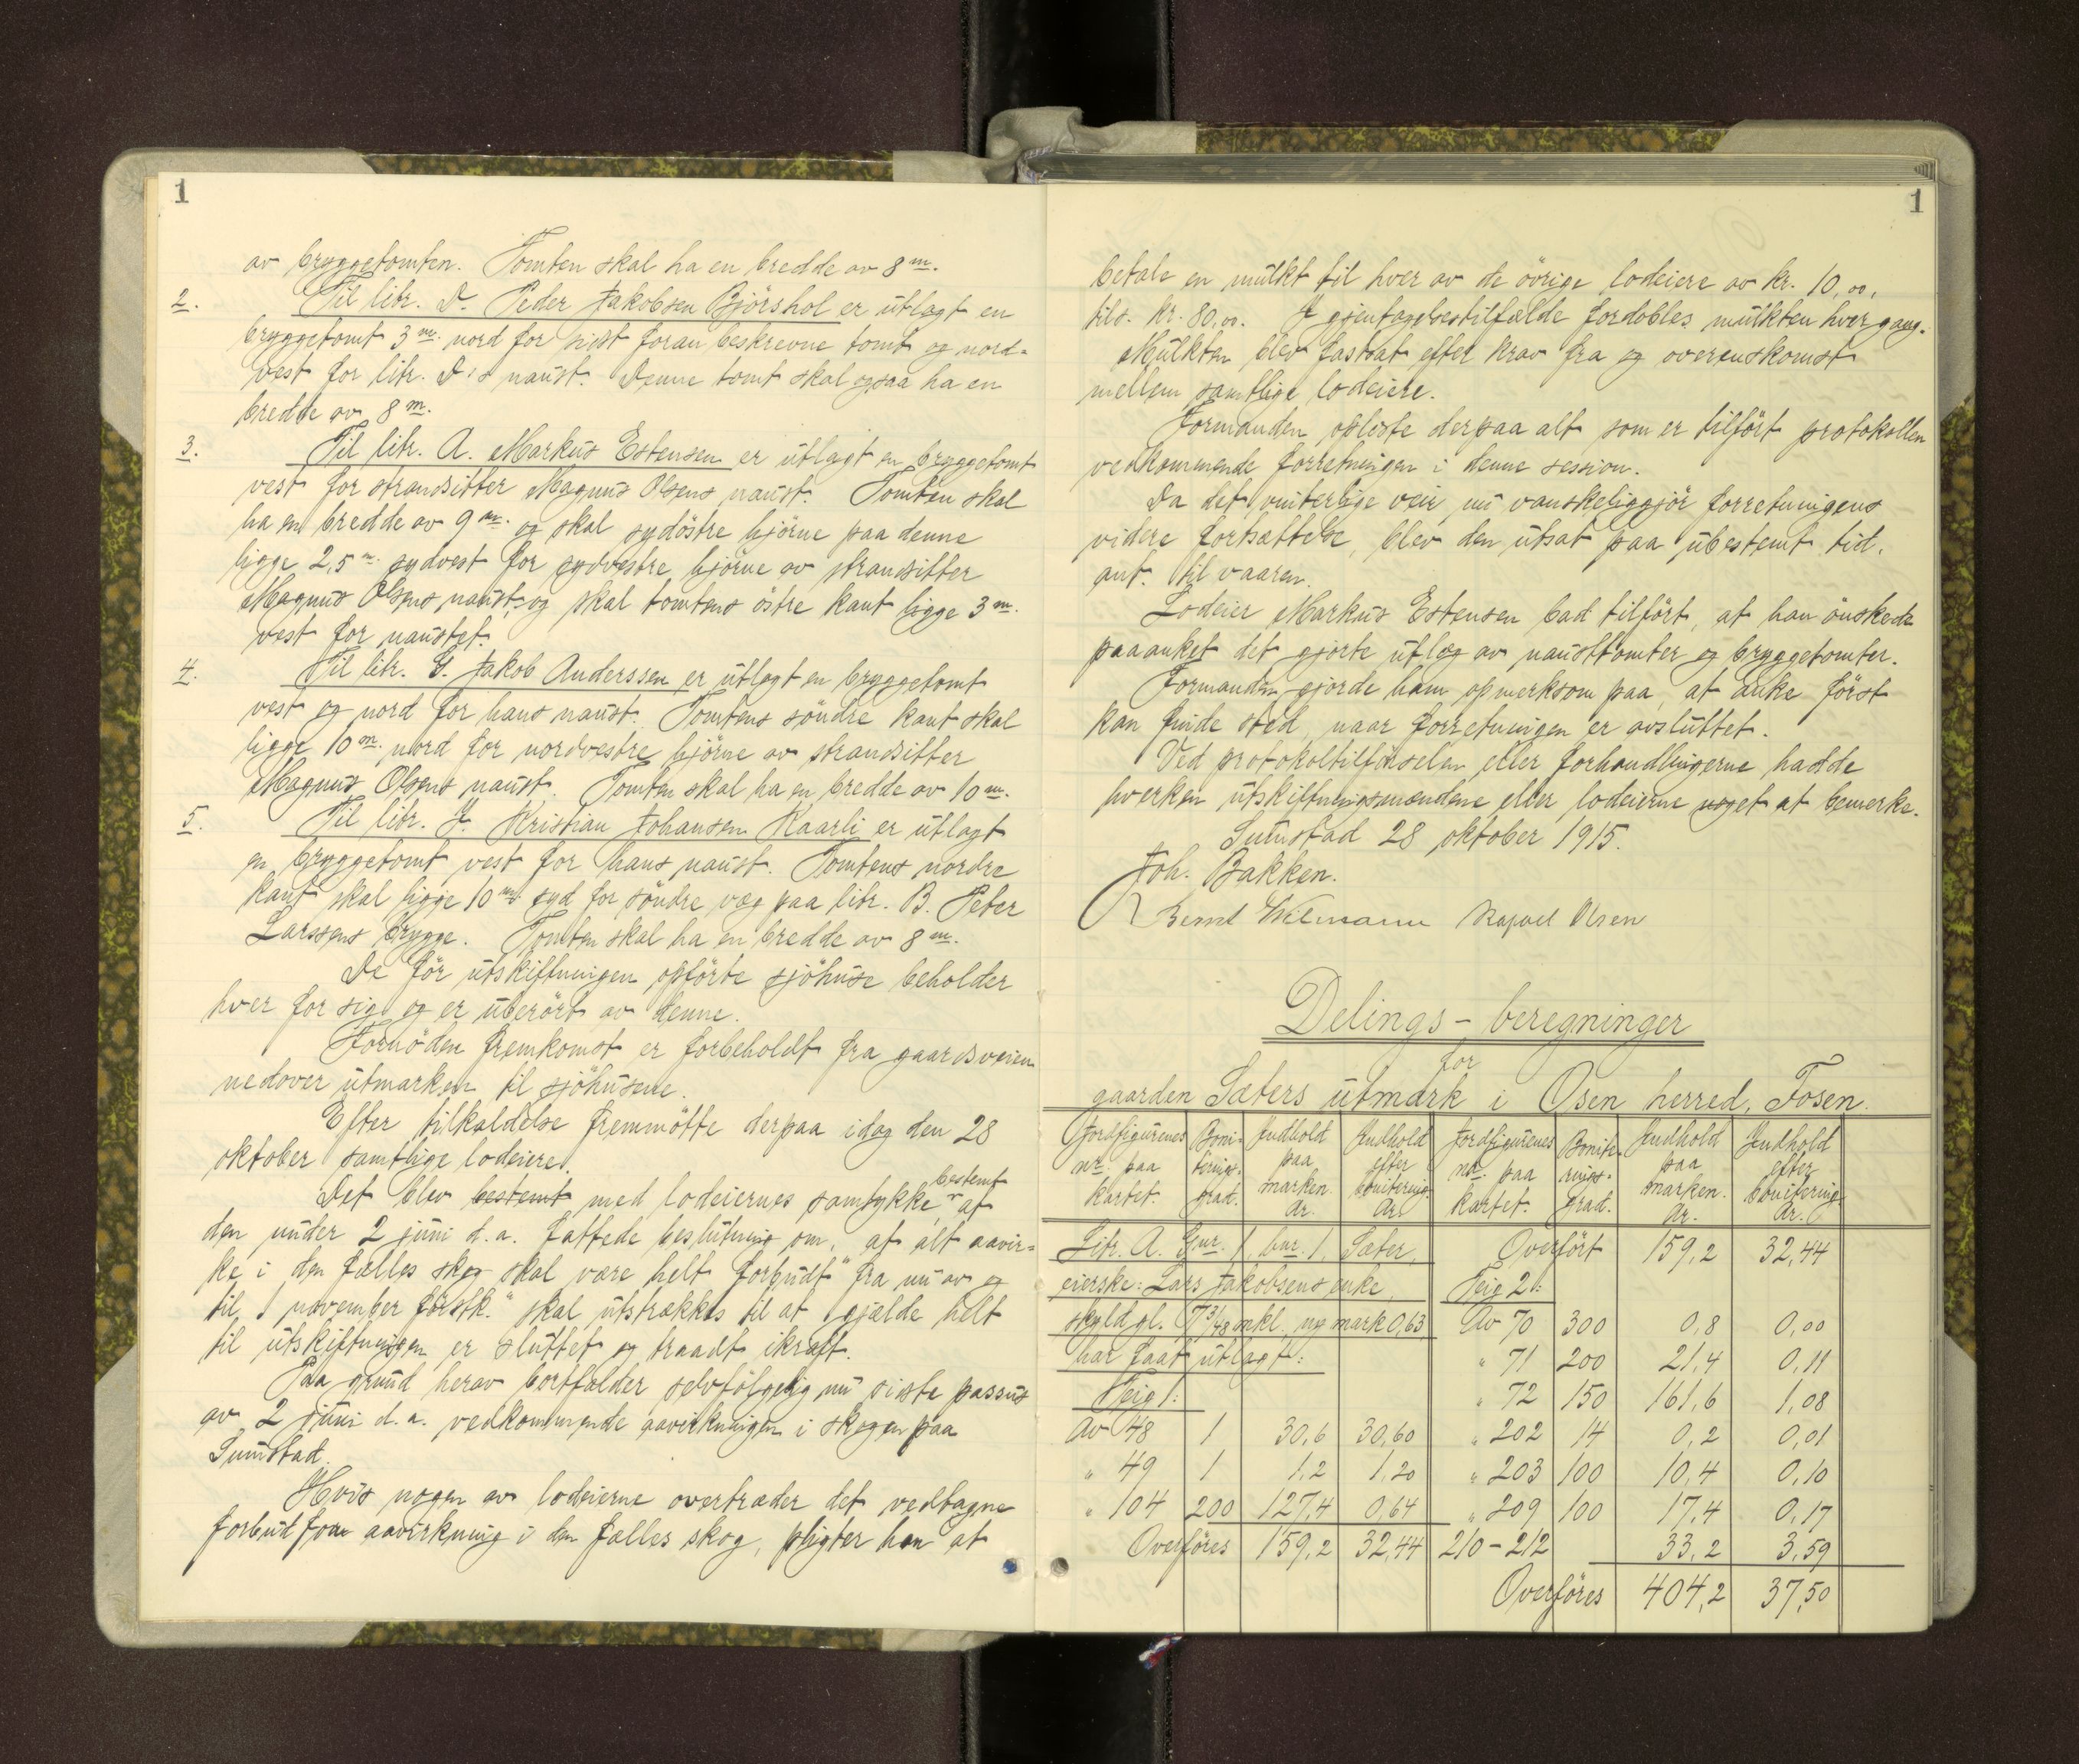 1
av bryggetomten. Tomten skal ha en bredde av 8 m.
2. Til litr. D. Peder Jakobsen Björshol er utlagt en
bryggetomt 3 m. nord for sist foran beskrevne tomt og nord-
vest for litr. D's naust. Denne tomt skal ogsaa ha en
bredde av 8 m.
3. Til litr. A. Markus Estensen er utlagt en bryggetomt
vest for strandsitter Magnus Olsens naust. Tomten skal
ha en bredde av 9 m. og skal sydöstre hjörne paa denne
ligge 2,5 m. sydvest for sydvestre hjörne av strandsitter
Magnus Olsens naust, og skal tomtens östre kant ligge 3 m.
vest for naustet.
4. Til litr. G. Jakob Anderssen er utlagt en bryggetomt
vest og nord for hans naust. Tomtens söndre kant skal
ligge 10 m. nord for nordvestre hjörne av strandsitter
Magnus Olsens naust. Tomten skal ha en bredde av 10 m.
5. Til litr. J. Kristian Johansen Kaarli er utlagt
en bryggetomt vest for hans naust. Tomtens nordre
kant skal ligge 10 m. syd for söndre væg paa litr. B. Peter
Larssens brygge. Tomten skal ha en bredde av 8 m.
De för utskiftningen opförte sjöhuse beholder
hver for sig og er uberört av denne.
Fornöden fremkomst er forbeholdt fra gaardsveien
nedover utmarken til sjöhusene.
Efter tilkaldelse fremmötte derpaa idag den 28
oktober samtlige lodeiere.
Det blev bestemt med lodeiernes samtykke, bestemt at
den under 2 juni d.a. fattede beslutning om, at alt aavir-
ke i den fælles skog skal være helt forbudt "fra nu av og
til 1 november förstk." skal utstrækkes til at gjælde helt
til utskiftningen er sluttet og traadt ikraft.
Paa grund herav bortfalder selvfölgelig nu siste passus
av 2 juni d.a. vedkommende aavirkningen i skogen paa
Sumstad.
Hvis nogen av lodeierne overtræder det vedtagne
forbud for aavirkning i den fælles skog, pligter han at
1
betale en mulkt til hver av de övrige lodeiere av kr. 10,00,
tils. kr. 80,00. I gjentagelsestilfælde fordobles mulkten hver gang.
Mulkten blev fastsat efter krav fra og overenskomst
mellem samtlige lodeiere.
Formanden opleste derpaa alt som er tilfört protokollen
vedkommende forretningen i denne session.
Da det vinterlige veir nu vanskeliggjör forretningens
videre fortsættelse, blev den utsat paa ubestemt tid,
ant. til vaaren.
Lodeier Markus Estensen bad tilfört, at han önskede
paaanket det gjorte utlæg av nausttomter og bryggetomter.
Formanden gjorde ham opmerksom paa, at anke först
kan finde sted, naar forretningen er avsluttet.
Ved protokoltilförselen eller forhandlingerne hadde
hverken utskiftningsmændene eller lodeierne noget at bemerke.
Sumstad 28 oktober 1915.
Joh. Bakken.
Bernt Olsen
Delings - beregninger
for
gaarden Sæters utmark i Osen herred, Fosen.
Jordfigurenes nr. paa kartet. Boni- terings- grad. Indhold paa marken. Ar. Indhold efter bonitering. Ar. Jordfigurenes nr. paa kartet. Bonite- rings- grad. Indhold paa marken. Ar. Indhold efter bonitering. Ar.
Litr. A. Gnr. 1, bnr. 1, Sæter, Overfört 159,2 32,44
eierske: Lars Jakobsens enke, Teig 2:
skyld gl. mkl, ny mark 0,63, Av 70 300 0,8 0,00
har faat utlagt: " 71 200 21,4 0,11
Teig 1: " 72 150 161,6 1,08
Av 48 1 30,6 30,60 " 202 14 0,2 0,01
" 49 1 1,2 1,20 " 203 100 10,4 0,10
" 104 200 127,4 0,64 " 209 100 17,4 0,17
Overföres 159,2 32,44 210-212 33,2 3,59
Overföres 404,2 37,50